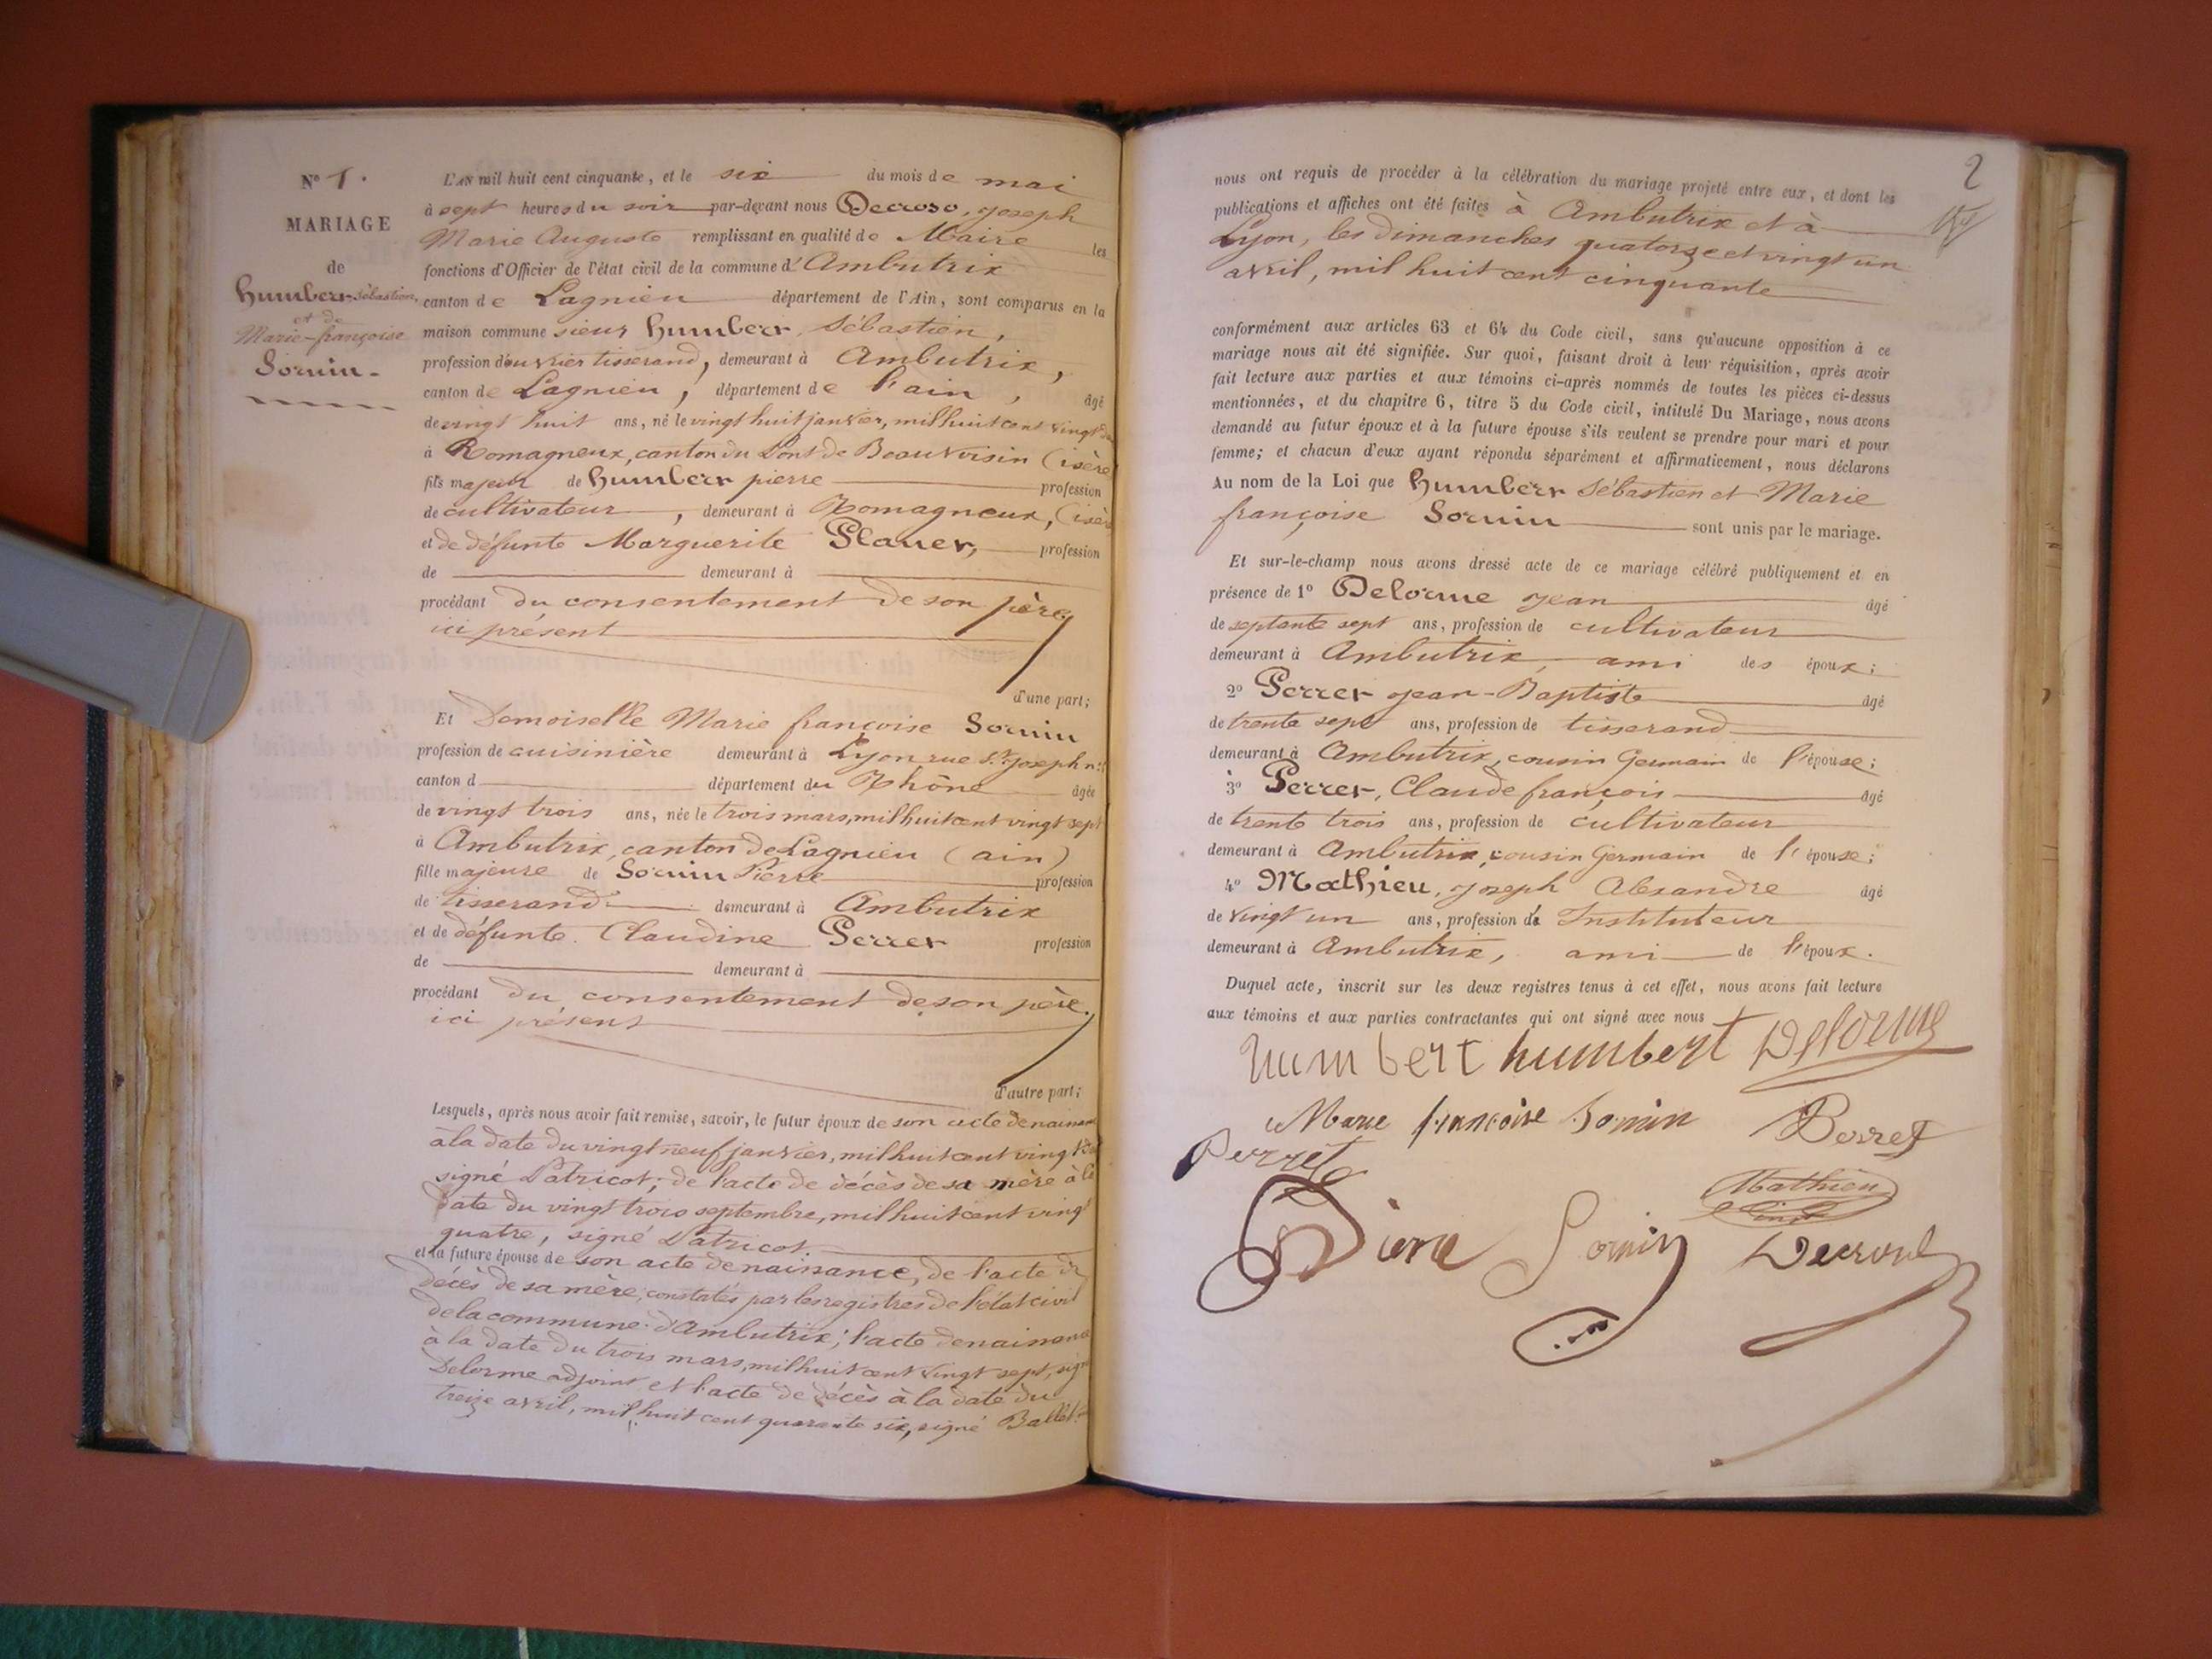 N° 1.
MARIAGE
de
humbert Sébastien,
et de
Marie-françoise
Sornin.
L'AN mil huit cent cinquante, et le six du mois de mai
à sept heures du soir par-devant nous Decroso, joseph
Marie Auguste remplissant en qualité de Maire les
fonctions d'Officier de l'état civil de la commune d'Ambutrix
canton de Lagnieu département de l'Ain, sont comparus en la
maison commune sieur humbert, Sébastien,
profession d'ouvrier tisserand, demeurant à Ambutrix,
canton de Lagnieu, département de l'ain, âgé
de vingt huit ans, né le vingt huit janvier, mil huit cent vingt
à Romagneux, canton du Pont de Beauvoisin (isère)
fils majeur de humbert pierre profession
de cultivateur, demeurant à Romagneux, (isère
et de défunte Marguerite Planer, profession
de demeurant à
procédant du consentement de son père
ici présent
d'une part;
Et Demoiselle Marie françoise Sornin
profession de cuisinière demeurant à Lyon rue St. joseph n°
canton d département du Rhône âgée
de vingt trois ans, née le trois mars, mil huit cent vingt sept
à Ambutrix, canton de Lagnieu (ain)
fille majeure de Sornin Pierre profession
de tisserand demeurant à Ambutrix
et de défunte Claudine Perret profession
de demeurant à
procédant du consentement de son père.
ici présent
d'autre part;
Lesquels, après nous avoir fait remise, savoir, le futur époux de son acte de naissance
à la date du vingt neuf janvier, mil huit cent vingt
signé Patricot; de l'acte de décès de sa mère à la
date du vingt trois septembre, mil huit cent vingt
quatre, signé Patricot.
et la future épouse de son acte de naissance, de l'acte de
décès de sa mère, constatés par les registres de l'état civil
de la commune d'Ambutrix; l'acte de naissance
à la date du trois mars, mil huit cent vingt sept, signé
Delorme adjoint et l'acte de décès à la date du
treize avril, mil huit cent quarante six, signé Ballet
2
nous ont requis de procéder à la célébration du mariage projeté entre eux, et dont les
publications et affiches ont été faites à Ambutrix et à
Lyon, les dimanches quatorze et vingt un
avril, mil huit cent cinquante
conformément aux articles 63 et 64 du Code civil, sans qu'aucune opposition à ce
mariage nous ait été signifiée. Sur quoi, faisant droit à leur réquisition, après avoir
fait lecture aux parties et aux témoins ci-après nommés de toutes les pièces ci-dessus
mentionnées, et du chapitre 6, titre 5 du Code civil, intitulé Du Mariage, nous avons
demandé au futur époux et à la future épouse s'ils veulent se prendre pour mari et pour
femme; et chacun d'eux ayant répondu séparément et affirmativement, nous déclarons
Au nom de la Loi que humbert Sébastien et Marie
françoise Sornin sont unis par le mariage.
Et sur-le-champ nous avons dressé acte de ce mariage célébré publiquement et en
présence de 1° Delorme jean âgé
de septante sept ans, profession de cultivateur
demeurant à Ambutrix, ami des époux;
2° Perret jean-Baptiste âgé
de trente sept ans, profession de tisserand
demeurant à Ambutrix, cousin Germain de l'épouse;
3° Perret, Claude françois âgé
de trente trois ans, profession de cultivateur
demeurant à Ambutrix, cousin Germain de l'épouse;
4° Mathieu, joseph Alexandre âgé
de vingt un ans, profession d' Instituteur
demeurant à Ambutrix, ami de l'époux.
Duquel acte, inscrit sur les deux registres tenus à cet effet, nous avons fait lecture
aux témoins et aux parties contractantes qui ont signé avec nous
humbert humbert Delorme
Marie françoise Sornin Perret
Perret
Mathieu
Pierre Sornin Decroso